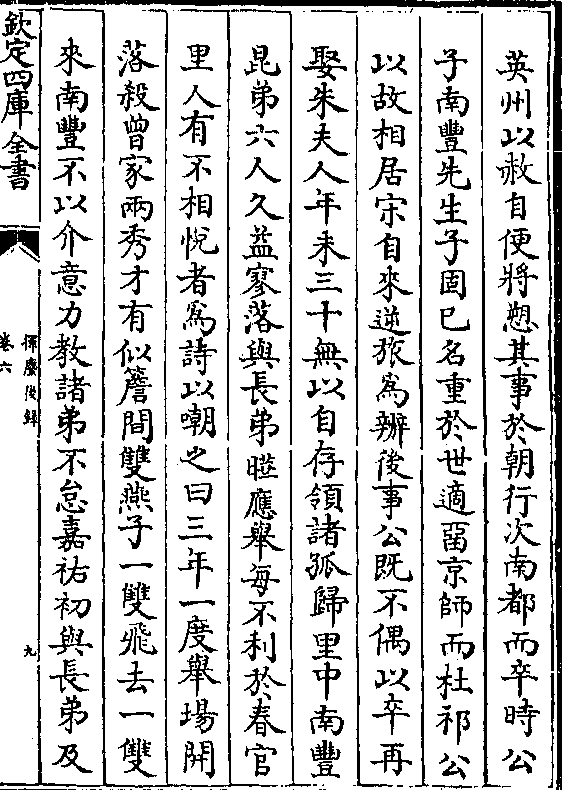 英州以赦自便將愬其事於朝行次南都而卒時公
子南豐先生子固已名重於世適留京師而杜祁公
以故相居宋自來逆旅為辦後事公既不偶以卒再
娶朱夫人年未三十無以自存領諸孤歸里中南豐
昆弟六人久益寥落與長弟曅應舉每不利於春官
里人有不相悅者為詩以嘲之曰三年一度舉場開
落殺曾家兩秀才有似簷間雙燕子一雙飛去一雙
來南豐不以介意力教諸弟不怠嘉祐初與長弟及
欽定四庫全書
揮麈後録
卷六
九